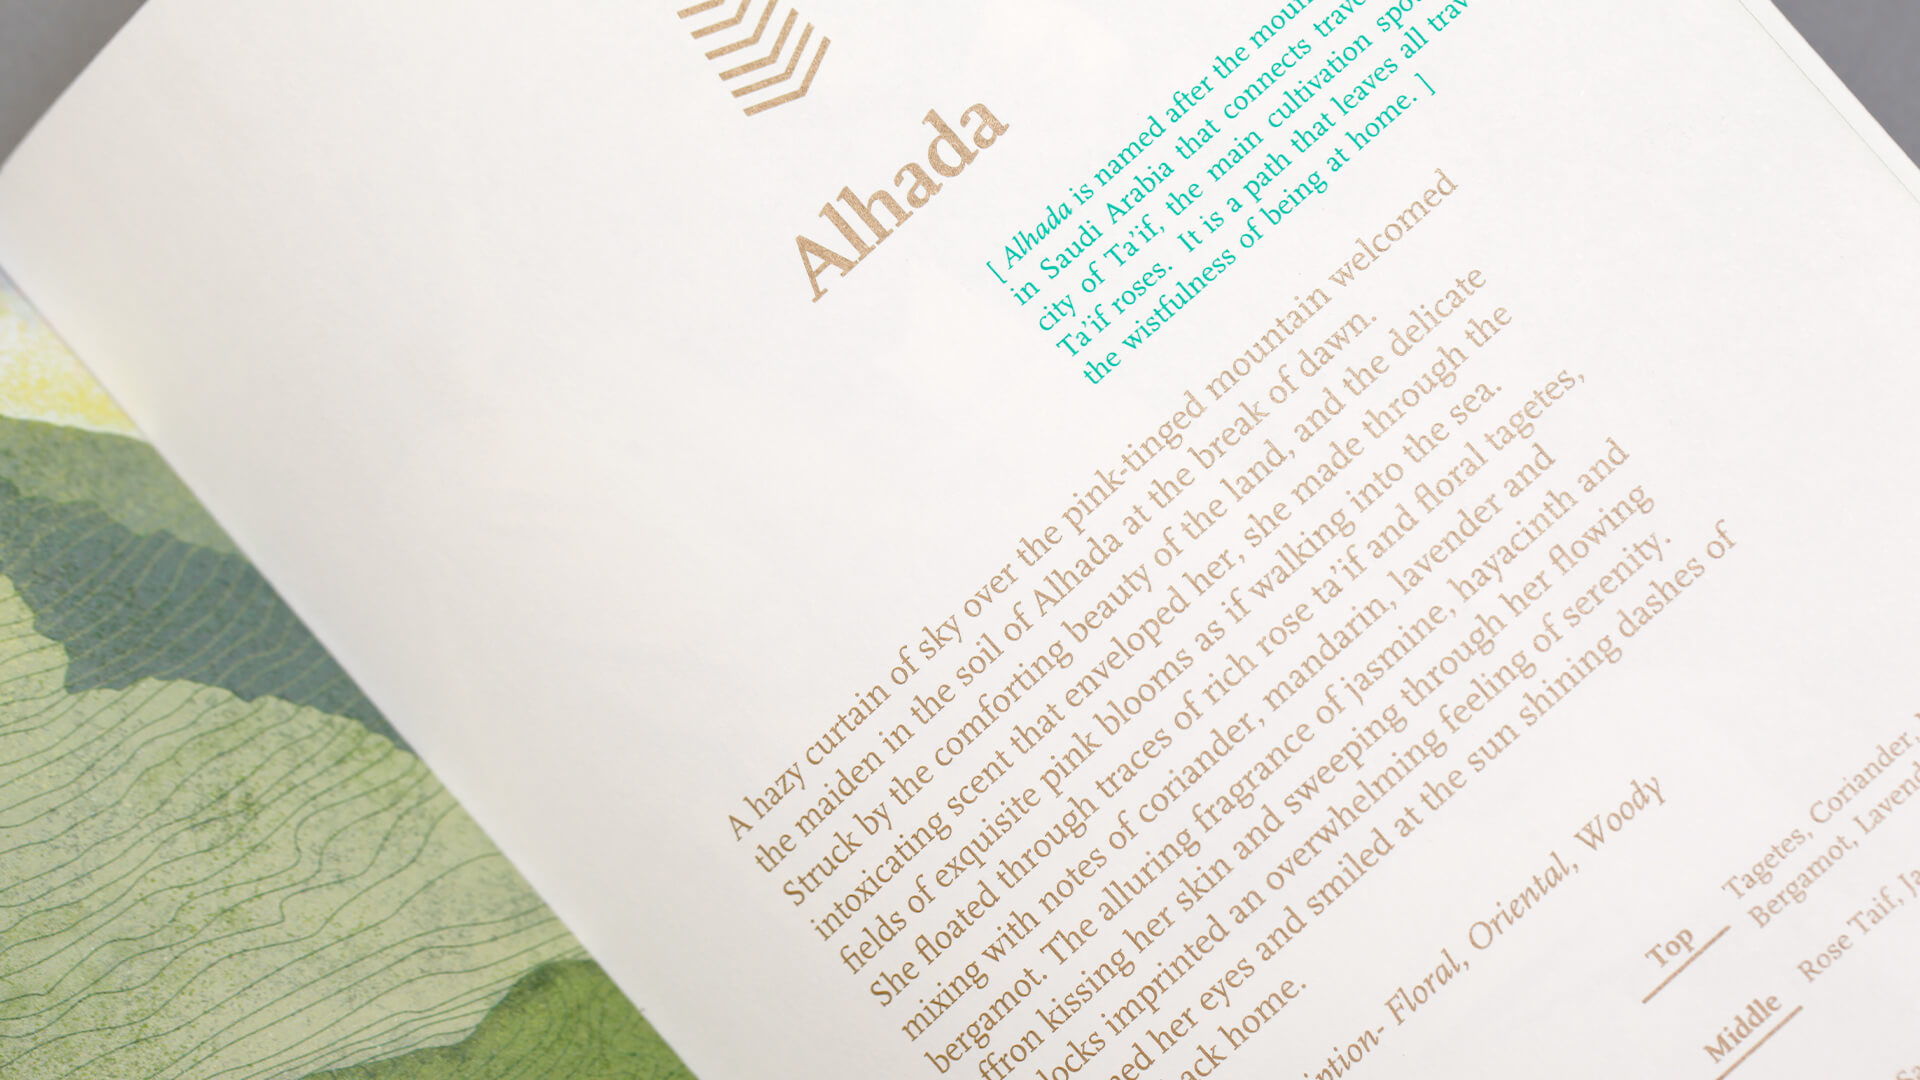 Alhada
[ Alhada is named after the
in Saudi Arabia that connects
city of Ta'if, the main cultivation
Ta'if roses. It is a path that leaves all
the wistfulness of being at home. ]
A hazy curtain of sky over the pink-tinged mountain welcomed
the maiden in the soil of Alhada at the break of dawn.
Struck by the comforting beauty of the land, and the delicate
intoxicating scent that enveloped her, she made through the
fields of exquisite pink blooms as if walking into the sea.
She floated through traces of rich rose ta'if and floral tagetes,
mixing with notes of coriander, mandarin, lavender and
bergamot. The alluring fragrance of jasmine, hayacinth and
ffron kissing her skin and sweeping through her flowing
locks imprinted an overwhelming feeling of serenity.
ed her eyes and smiled at the sun shining dashes of
ack home.
ption- Floral, Oriental, Woody
Top
Tagetes, Coriander,
Bergamot, Lavend
Middle
Rose Taif, Ja